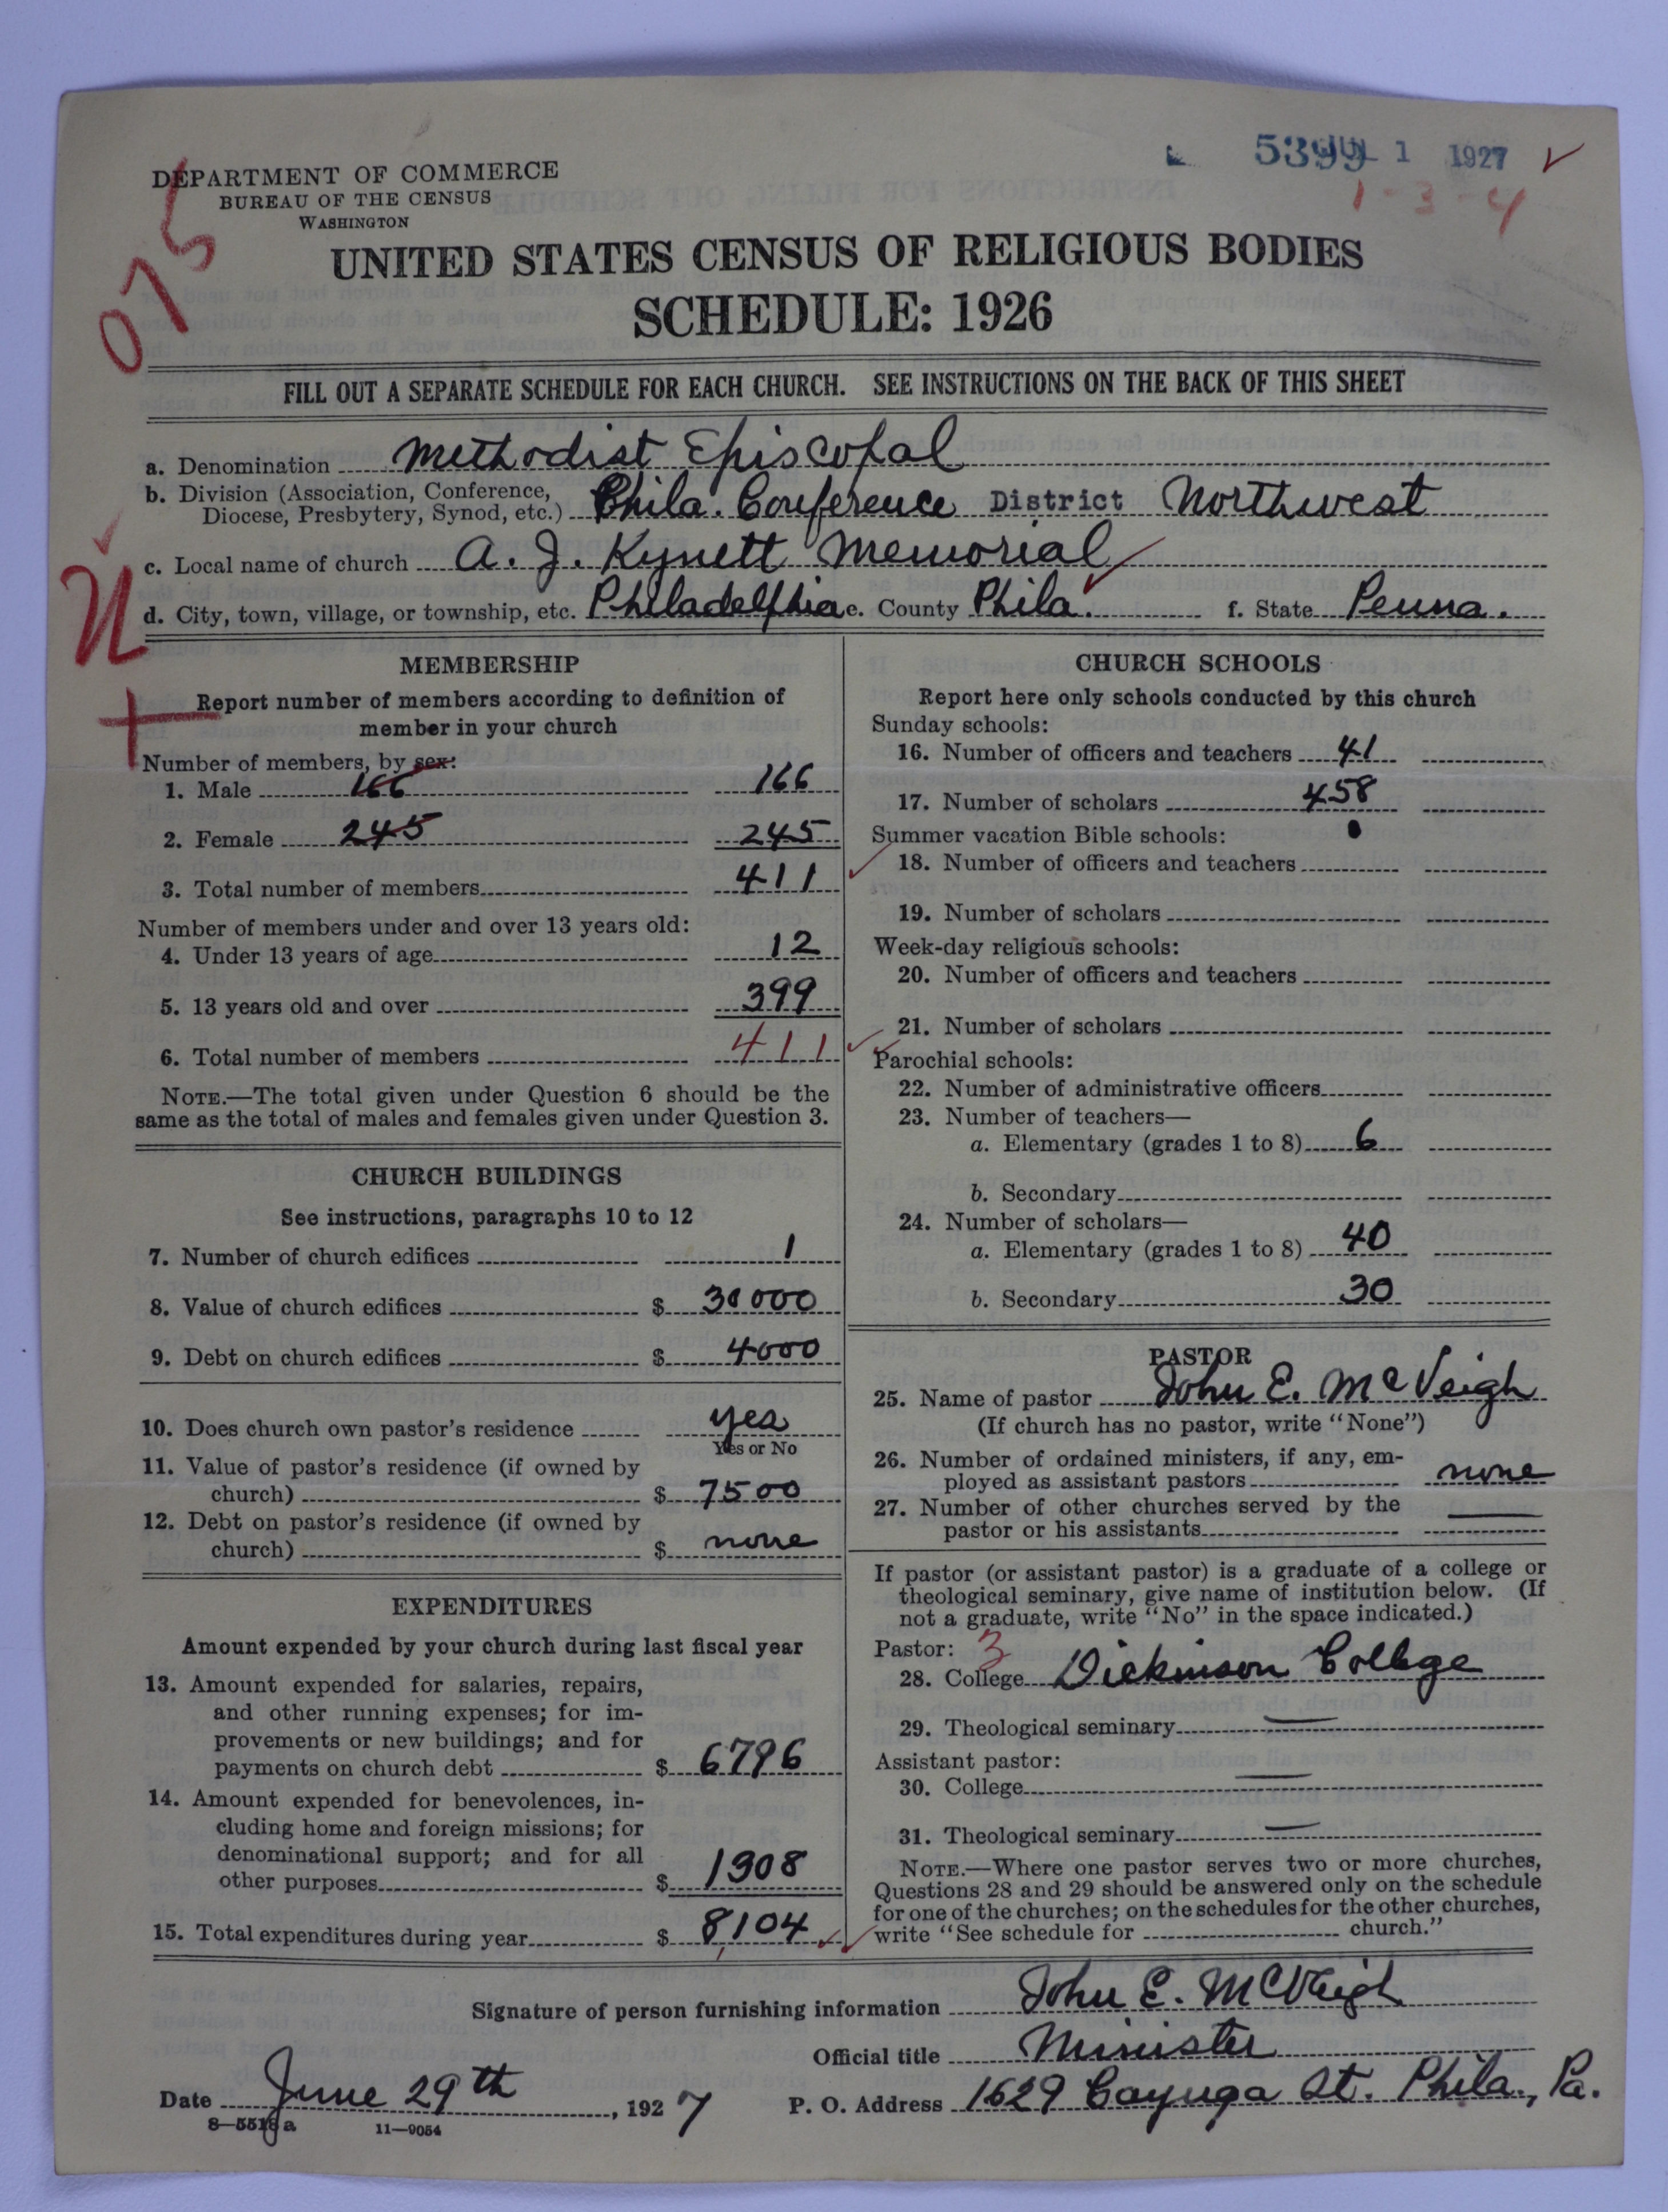 5399 JUL 1 1927 ✓
1-3-4
075
DEPARTMENT OF COMMERCE
BUREAU OF THE CENSUS
WASHINGTON
UNITED STATES CENSUS OF RELIGIOUS BODIES
SCHEDULE: 1926
FILL OUT A SEPARATE SCHEDULE FOR EACH CHURCH. SEE INSTRUCTIONS ON THE BACK OF THIS SHEET
a. Denomination Methodist Episcopal
b. Division (Association, Conference, Diocese, Presbytery, Synod, etc.) Phila. Conference District Northwest
c. Local name of church A. J. Kynett Memorial
d. City, town, village, or township, etc. Philadelphia e. County Phila. f. State Penna.
MEMBERSHIP
Report number of members according to definition of
member in your church
Number of members, by sex:
1. Male 166 166
2. Female 245 245
3. Total number of members 411
Number of members under and over 13 years old:
4. Under 13 years of age 12
5. 13 years old and over 399
6. Total number of members 411
NOTE.—The total given under Question 6 should be the
same as the total of males and females given under Question 3.
CHURCH BUILDINGS
See instructions, paragraphs 10 to 12
7. Number of church edifices 1
8. Value of church edifices $ 30000
9. Debt on church edifices $ 4000
10. Does church own pastor's residence yes
Yes or No
11. Value of pastor's residence (if owned by
church) $ 7500
12. Debt on pastor's residence (if owned by
church) $ none
EXPENDITURES
Amount expended by your church during last fiscal year
13. Amount expended for salaries, repairs,
and other running expenses; for im-
provements or new buildings; and for
payments on church debt $ 6796
14. Amount expended for benevolences, in-
cluding home and foreign missions; for
denominational support; and for all
other purposes $ 1308
15. Total expenditures during year $ 8,104
CHURCH SCHOOLS
Report here only schools conducted by this church
Sunday schools:
16. Number of officers and teachers 41
17. Number of scholars 458
Summer vacation Bible schools:
18. Number of officers and teachers
19. Number of scholars
Week-day religious schools:
20. Number of officers and teachers
21. Number of scholars
Parochial schools:
22. Number of administrative officers
23. Number of teachers—
a. Elementary (grades 1 to 8) 6
b. Secondary
24. Number of scholars—
a. Elementary (grades 1 to 8) 40
b. Secondary 30
PASTOR
25. Name of pastor John E. McVeigh
(If church has no pastor, write "None")
26. Number of ordained ministers, if any, em-
ployed as assistant pastors none
27. Number of other churches served by the
pastor or his assistants
If pastor (or assistant pastor) is a graduate of a college or
theological seminary, give name of institution below. (If
not a graduate, write "No" in the space indicated.)
Pastor: 3
28. College Dickinson College
29. Theological seminary
Assistant pastor:
30. College
31. Theological seminary
NOTE.—Where one pastor serves two or more churches,
Questions 28 and 29 should be answered only on the schedule
for one of the churches; on the schedules for the other churches,
write "See schedule for church."
Signature of person furnishing information John E. McVeigh
Official title Minister
Date June 29th, 1927 P. O. Address 1629 Cayuga St. Phila., Pa.
8—5518a 11—9054